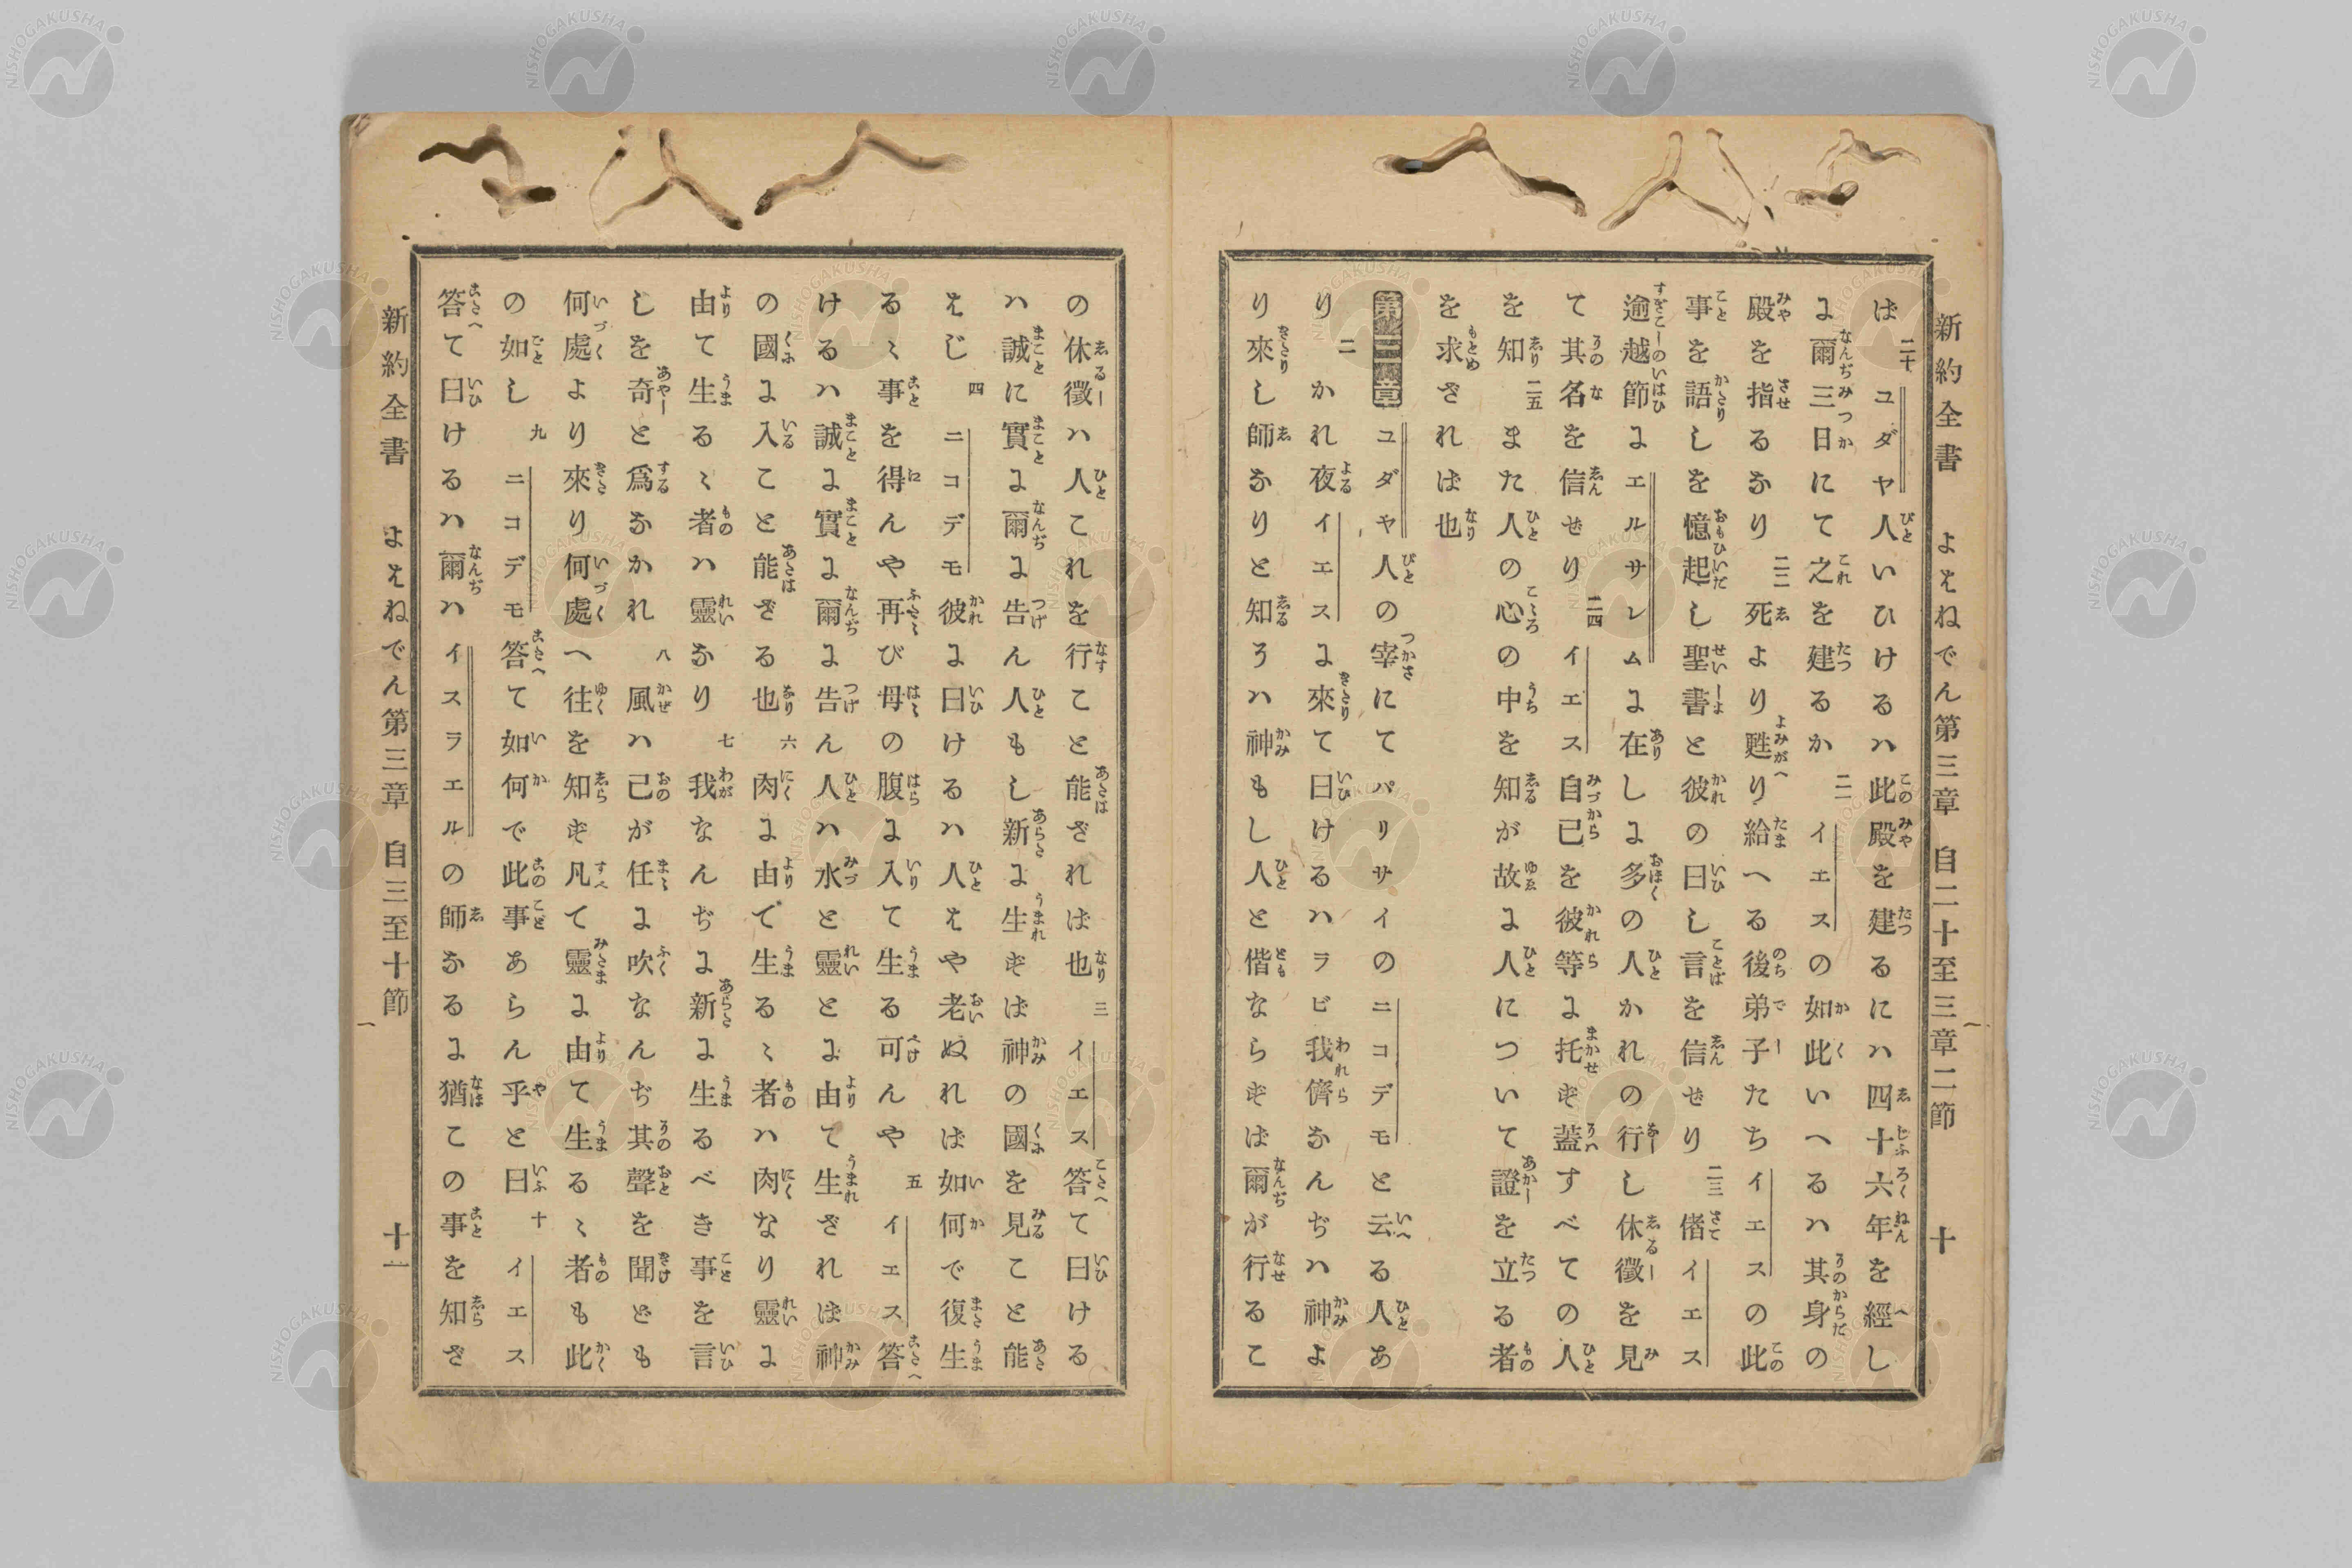 新約全書 よはねでん第三章 自二十至三章二節 十
ば 二十 ユダヤ人いひけるハ此殿を建るにハ四十六年を經し
に爾三日にて之を建るか 二一 イエスの如此いへるハ其身の
殿を指るなり 二二 死より甦り給へる後弟子たちイエスの此
事を語しを憶起し聖書と彼の曰し言を信せり 二三 偖イエス
逾越節にエルサレムに在しに多の人かれの行し休徵を見
て其名を信せり 二四 イエス自己を彼等に托ず蓋すべての人
を知 二五 また人の心の中を知が故に人について證を立る者
を求ざれば也
第三章 ユダヤ人の宰にてパリサイのニコデモと云る人あ
り 二 かれ夜イエスに來て曰けるハラビ我儕なんぢハ神よ
り來し師なりと知そハ神もし人と偕ならずば爾が行るこ
の休徵ハ人これを行こと能ざれば也 三 イエス答て曰ける
ハ誠に實に爾に告ん人もし新に生ずば神の國を見こと能
はじ 四 ニコデモ彼に曰けるハ人はや老ぬれば如何で復生
るゝ事を得んや再び母の腹に入て生る可んや 五 イエス答
けるハ誠に實に爾に告ん人ハ水と靈とに由て生ざれば神
の國に入こと能ざる也 六 肉に由て生るゝ者ハ肉なり靈に
由て生るゝ者ハ靈なり 七 我なんぢに新に生るべき事を言
しを奇と爲なかれ 八 風ハ己が任に吹なんぢ其聲を聞ども
何處より來り何處へ往を知ず凡て靈に由て生るゝ者も此
の如し 九 ニコデモ答て如何で此事あらん乎と曰 十 イエス
答て曰けるハ爾ハイスラエルの師なるに猶この事を知ざ
新約全書 よはねでん第三章 自三至十節 十一
NISHOGAKUSHA